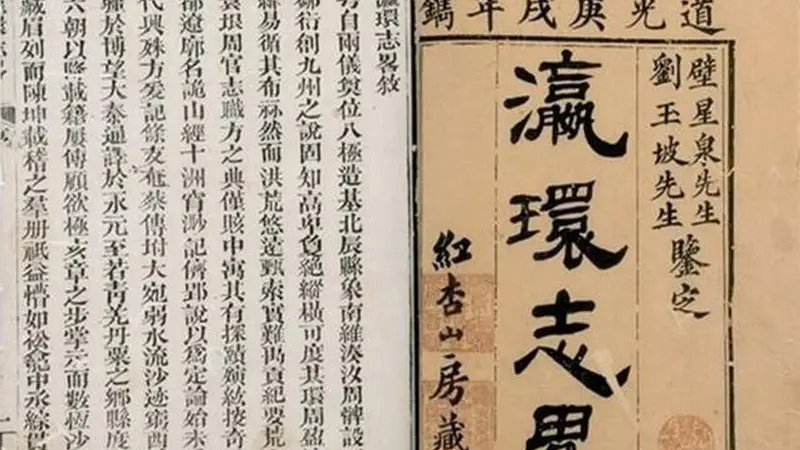 道光庚戌年鐫
壁星泉先生
劉玉坡先生
鑒定
瀛環志畧
紅杏山房藏
環志畧敘
自兩儀奠位八極造基北辰縣象南維湊汝周髀設
鄒衍創九州之說固知高卑負絶縱橫可度其環周盈
易循其布然而洪荒悠遠甄索實難禹貢紀要荒
垠周官志職方之典僅賅申寓其有探賾接奇
都遼廓名詭山經十洲窅渺記儕郢說以爲定論始未
代興殊方爰記條支奄蔡傳坿大宛弱水流沙迹窮
於博望大秦通譯於永元至若靑羌丹粟之鄉縣度
六朝以降載籍屢傳顧欲極亥章之步掌示而數恆沙
藏眉列而陳坤載稽之羣册祇益懵如